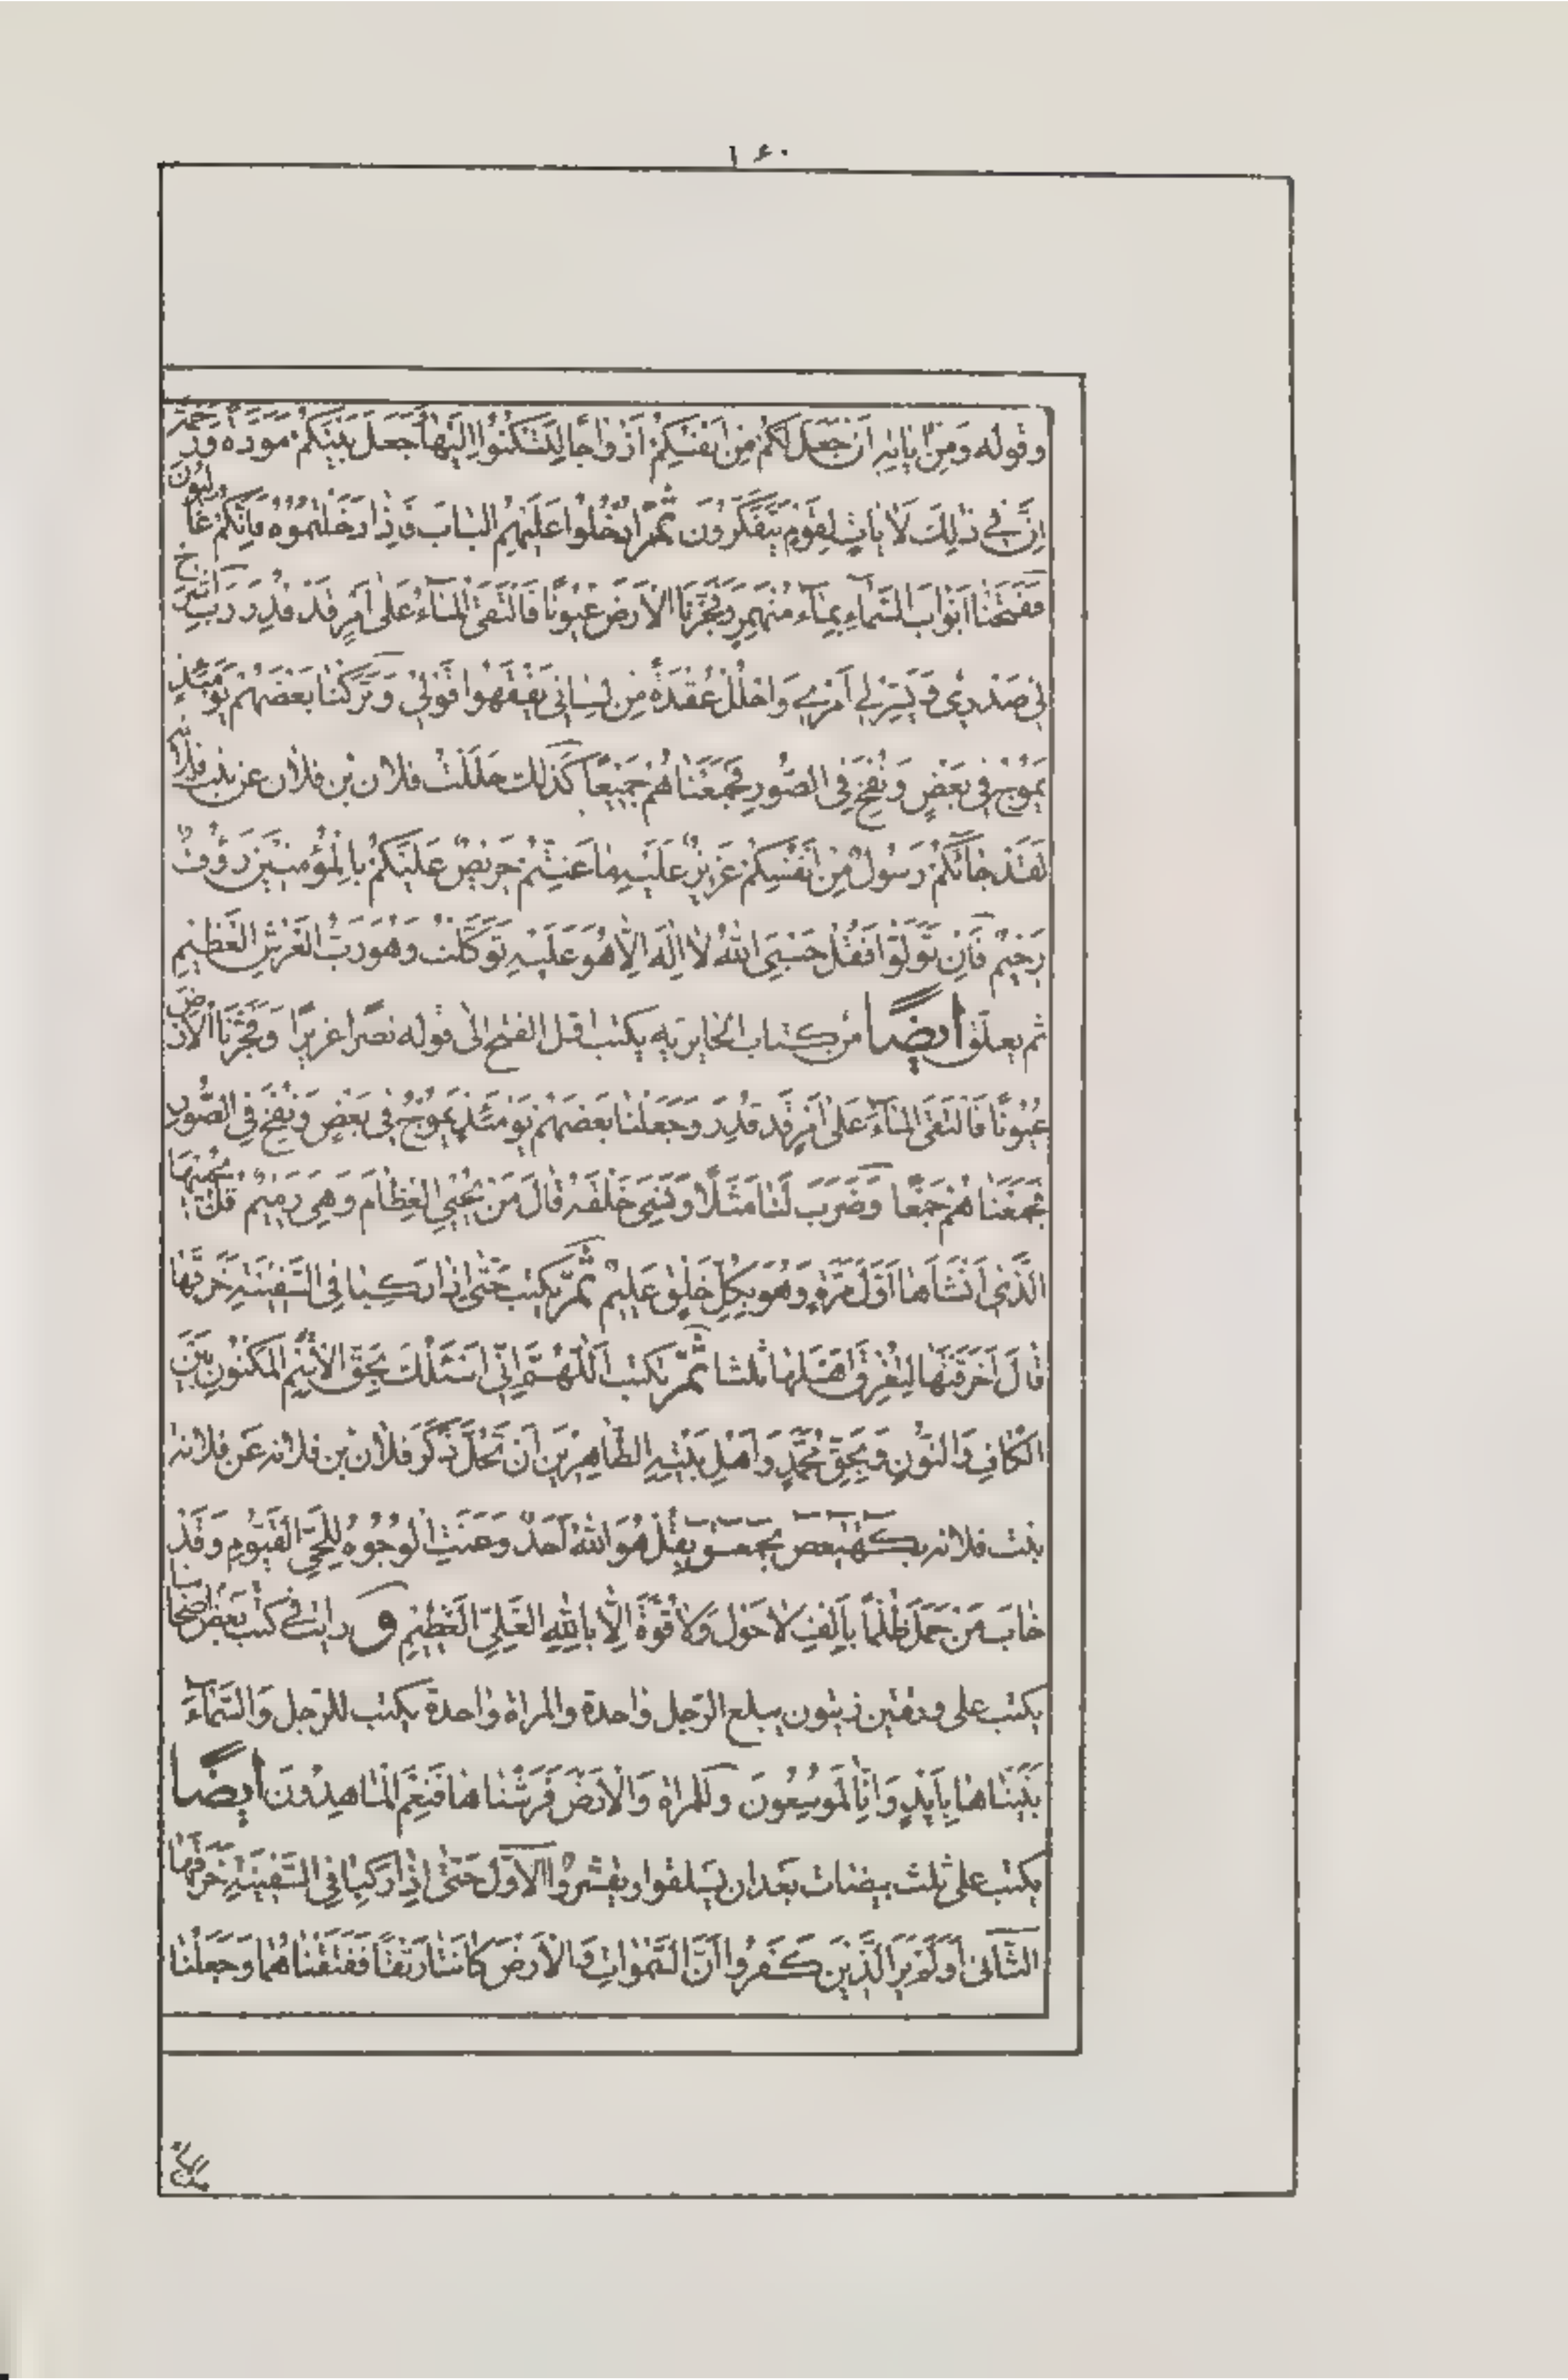 ۱۶۰
وقوله وَمِنْ اٰيٰاتِهِ اَنْ جَعَلَ لَكُمْ مِنْ اَنْفُسِكُمْ اَزْوٰاجًا لِتَسْكُنُوا اِلَيْهٰا وَجَعَلَ بَيْنَكُمْ مَوَدَّةً وَرَحْمَةً
اِنَّ فِي ذٰلِكَ لَاٰيٰاتٍ لِقَوْمٍ يَتَفَكَّرُونَ ثُمَّ ادْخُلُوا عَلَيْهِمُ الْبٰابَ فَاِذٰا دَخَلْتُمُوهُ فَاِنَّكُمْ غٰالِبُونَ
فَفَتَحْنٰا اَبْوٰابَ السَّمٰاءِ بِمٰاءٍ مُنْهَمِرٍ وَفَجَّرْنَا الْاَرْضَ عُيُونًا فَالْتَقَى الْمٰاءُ عَلىٰ اَمْرٍ قَدْ قُدِرَ رَبِّ اشْرَحْ
لِي صَدْرِي وَيَسِّرْ لِي اَمْرِي وَاحْلُلْ عُقْدَةً مِنْ لِسٰانِي يَفْقَهُوا قَوْلِي وَتَرَكْنٰا بَعْضَهُمْ يَوْمَئِذٍ
يَمُوجُ فِي بَعْضٍ وَنُفِخَ فِي الصُّورِ فَجَمَعْنٰاهُمْ جَمِيعًا كَذٰلك حَلَلْتُ فلان بْن فلان عن بنت فلانة
لَقَدْ جٰائَكُمْ رَسُولٌ مِنْ اَنْفُسِكُمْ عَزِيزٌ عَلَيْهِ مٰا عَنِتُّمْ حَرِيصٌ عَلَيْكُمْ بِالْمُؤْمِنِينَ رَؤُفٌ
رَحِيمٌ فَاِنْ تَوَلَّوْا فَقُلْ حَسْبِيَ اللّٰهُ لٰا اِلٰهَ اِلَّا هُوَ عَلَيْهِ تَوَكَّلْتُ وَهُوَ رَبُّ الْعَرْشِ الْعَظِيمِ
ثم يعلّق أَيضًا من كتاب يكتب اوّل الفتح الى قوله نصرًا عزيزًا وَفَجَّرْنَا الْاَرْضَ
عُيُونًا فَالْتَقَى الْمٰاءُ عَلىٰ اَمْرٍ قَدْ قُدِرَ وَجَعَلْنٰا بَعْضَهُمْ يَوْمَئِذٍ يَمُوجُ فِي بَعْضٍ وَنُفِخَ فِي الصُّورِ
فَجَمَعْنٰاهُمْ جَمْعًا وَضَرَبَ لَنٰا مَثَلًا وَنَسِيَ خَلْقَهُ قٰالَ مَنْ يُحْيِي الْعِظٰامَ وَهِيَ رَمِيمٌ قُلْ يُحْيِيهَا
الَّذِي اَنْشَأَهٰا اَوَّلَ مَرَّةٍ وَهُوَ بِكُلِّ خَلْقٍ عَلِيمٌ ثُمَّ يكتب حَتّٰى اِذٰا رَكِبٰا فِي السَّفِينَةِ خَرَقَهٰا
قٰالَ اَخَرَقْتَهٰا لِتُغْرِقَ اَهْلَهٰا ثلثا ثُمَّ يكتب اَللّٰهُمَّ اِنِّي اَسْئَلُكَ بِحَقِّ الْاِسْمِ الْمَكْنُونِ بَيْنَ
الْكٰافِ وَالنُّونِ وَبِحَقِّ مُحَمَّدٍ وَاَهْلِ بَيْتِهِ الطّٰاهِرِينَ اَنْ تَحُلَّ ذَكَرَ فلان بْن فلانه عَن فلانه
بنت فلانه بكهيعص بحمعسق بِقُلْ هُوَ اللّٰهُ اَحَدٌ وَعَنَتِ الْوُجُوهُ لِلْحَيِّ الْقَيُّومِ وَقَدْ
خٰابَ مَنْ حَمَلَ ظُلْمًا بِاَلْفِ لٰا حَوْلَ وَلٰا قُوَّةَ اِلّٰا بِاللّٰهِ الْعَلِيِّ الْعَظِيمِ و رايت فى كتب بعض اصحابنا
يكتب على ورقتين زيتون يبلع الرّجل واحدة والمراة واحدة يكتب للرّجل وَالسَّمٰآءَ
بَنَيْنٰاهٰا بِاَيْدٍ وَاِنّٰا لَمُوسِعُونَ وللمراة وَالْاَرْضَ فَرَشْنٰاهٰا فَنِعْمَ الْمٰاهِدُونَ أَيضًا
يكتب على ثلث بيضات بعد ان يسلقوا ويقشروا الاوّل حَتّٰى اِذٰا رَكِبٰا فِي السَّفِينَةِ خَرَقَهٰا
الثّانى اَوَلَمْ يَرَ الَّذِينَ كَفَرُوا اَنَّ السَّمٰوٰاتِ وَالْاَرْضَ كٰانَتٰا رَتْقًا فَفَتَقْنٰاهُمٰا وَجَعَلْنٰا